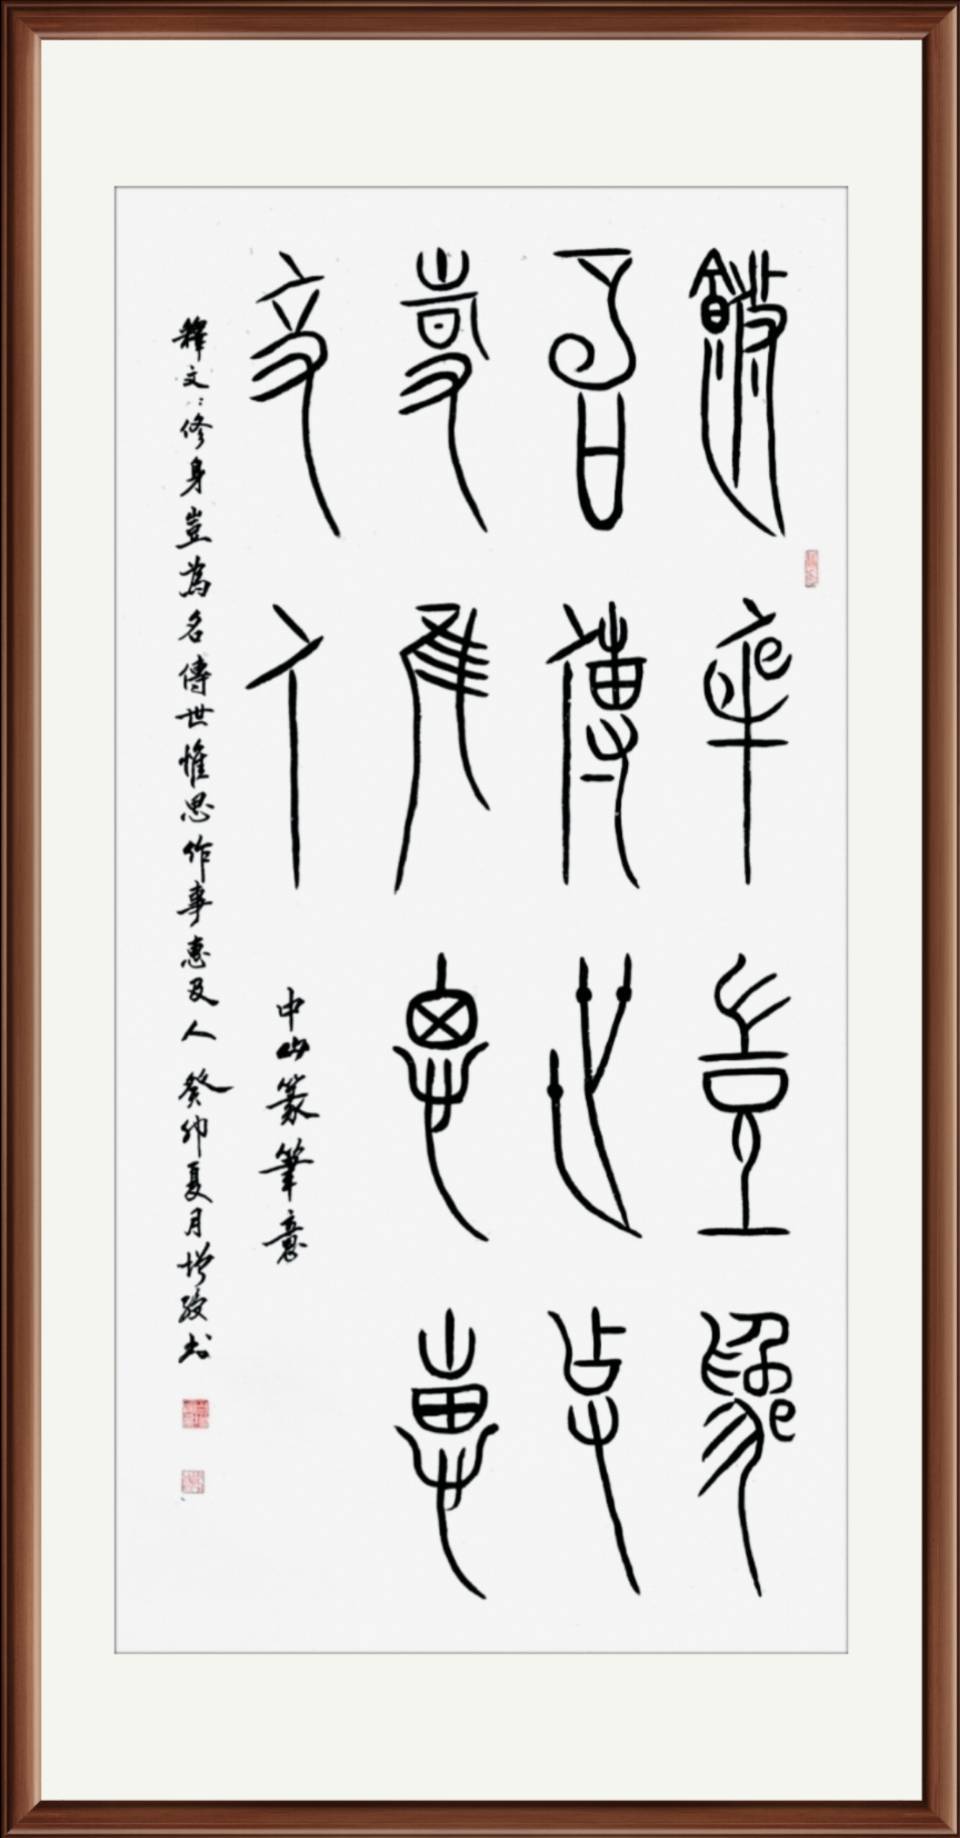 修身豈為
名傳世作
事惟思惠
及人
中山篆筆意
釋文：修身豈為名傳世惟思作事惠及人 癸卯夏月增书